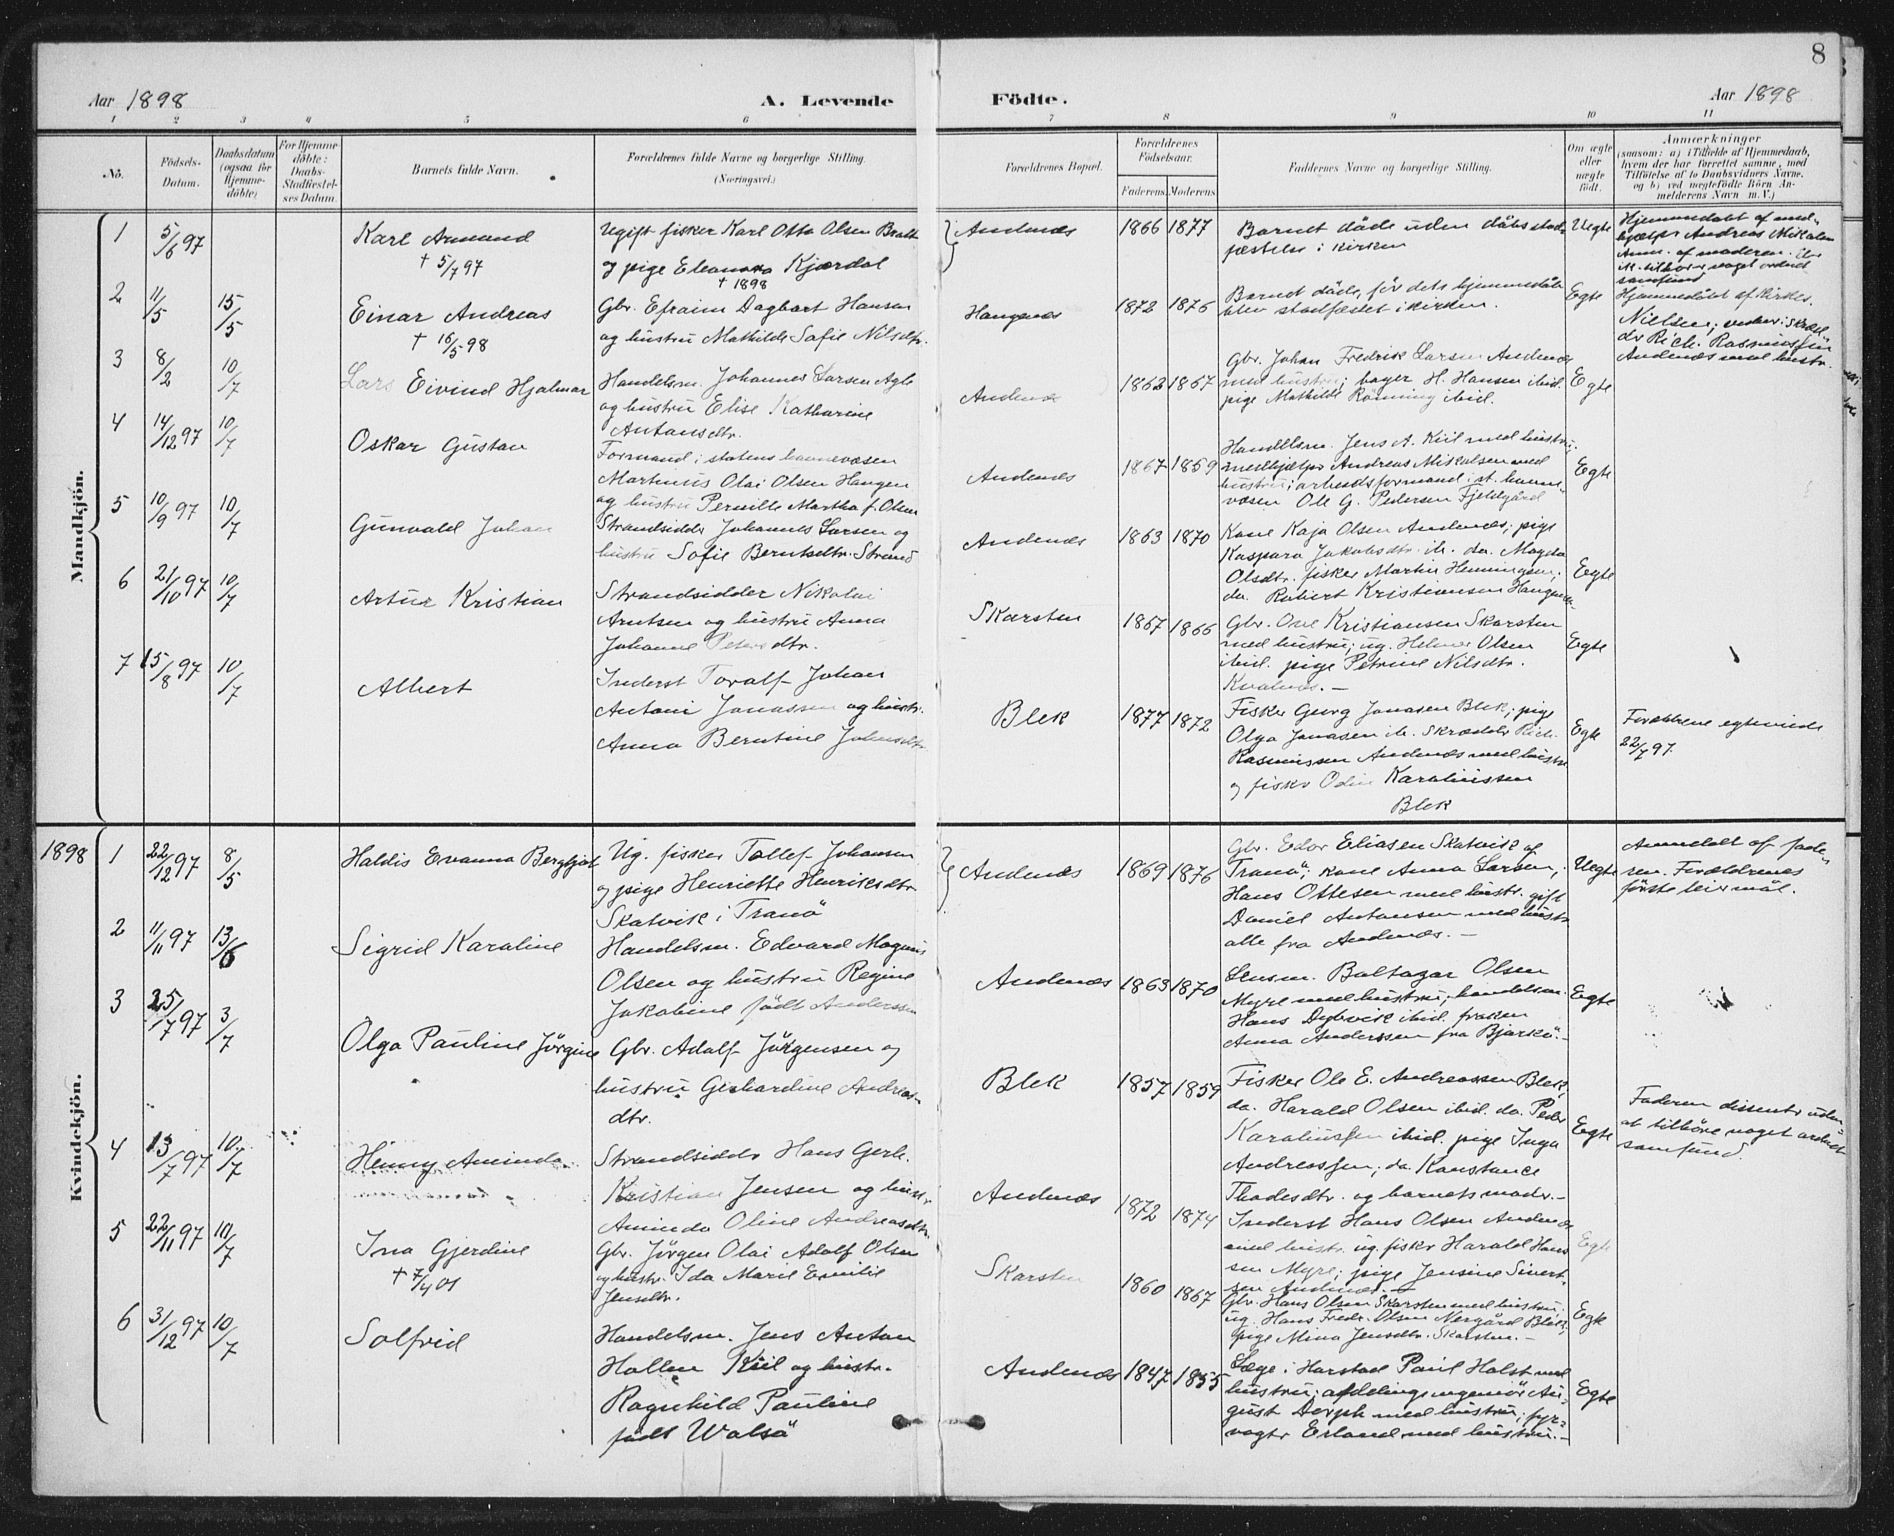 8
Aar 1898
A. Levende
Födte.
Aar 1898
1 2 3 4 5 6 7 8 9 10 11
No.
Födsels-
Datum.
Daabsdatum
(ogsaa för
Hjemme-
döbte)
For Hjemme-
döbte:
Daabs-
Stadfæstel-
ses Datum.
Barnets fulde Navn.
Forældrenes fulde Navne og borgerlige Stilling.
(Næringsvei.)
Forældrenes Bopæl.
Forældrenes
Födselsaar.
Faderens. Moderens.
Faddernes Navne og borgerlige Stilling.
Om ægte
eller
uægte
födt.
Anmærkninger
(saasom: a) i Tilfælde af Hjemmedaab,
hvem der har forrettet samme, med
Tilföielse af to Daabsvidners Navne.
og b) ved uegtefödte Börn An-
melderens Navn m. V.)
Mandkjön.
1
5/6 97
Karl Armand
† 5/7 97
Ugift fisker Karl Otto Olsen
og pige Eleanora Kjærdal
† 1898
Andenæs
1866 1877
Barnet døde uden dåbs stad-
fæstelse i kirken
Uegte
Hjemmedøbt af med-
hjælper Andreas Nikolai
Anm. af moderen.
samfund
2
11/5
15/5
Einar Andreas
† 16/5 98
Gbr. Efraim Dagbart Hansen
og hustru Mathilde Sofie Nilsdtr.
Haugnes
1872 1876
Barnet døde, før dets hjemmedåb
blev stadfæstet i kirken.
Egte
Hjemmedøbt af kirkes.
Nielsen;
Rich. Rasmussen
Andenæs med hustr.
3
8/2
10/7
Lars Eivind Hjalmar
Handelsm. Johannes Larsen
og hustru Elise Katharine
Antonsdtr.
Andenæs
1863 1867
Gbr. Johan Fredrik Larsen Andenæs
med hustru; bager H. Hansen ibid.
pige Mathilde Rönning ibid.
Egte
4
14/12 97
10/7
Oskar Gustav
Formand i statens havnevæsen
Martinus Olai Olsen Haugen
og hustru Pernille Martha f. Olsen
Andenæs
1867 1859
Handelsm. Jens A. Kiil med hustru;
medhjælper Andreas Mikalsen med
hustru; arbeidsformand i st. havne-
væsen Ole G. Pedersen Fjeldgård
Egte
5
10/9 97
10/7
Gunvald Johan
Strandsidder Johannes Larsen og
hustru Sofie Berntsdtr. Strand
Andenæs
1863 1870
Kone Kaja Olsen Andenæs; pige
Kaspara Jakobsdtr. ib. do. Magda
Olsdtr. fisker Martin Henningsen;
do. Robert Kristiansen Haugnes
Egte
6
21/10 97
10/7
Artur Kristian
Strandsidder Nikolai
Arntsen og hustru Anna
Johanne Petersdtr.
Skarsten
1867 1866
Gbr. Ove Kristiansen Skarsten
med hustru; ug. Helmer Olsen
ibid. pige Petrine Nilsdtr.
Kvalnes.
Egte
7
15/8 97
10/7
Albert
Inderst Toralf Johan
Antoni Jonassen og hustr.
Anna Berntine Johnsdtr.
Blek
1877 1872
Fisker Georg Jonasen Blek; pige
Olga Jonasen ib. Skrædder Rich.
Rasmussen Andenæs med hustru
og fisker Odin Karoliussen
Blek
Egte
Forældrene egteviede
22/7 97
Kvindekjön.
1898
1
22/12 97
8/5
Haldis Evanna Bergljot
Ug. fisker Tollef Johansen
og pige Henriette Henriksdtr.
Skatvik i Tranö
Andenæs
1869 1876
Gbr. Edor Eliasen Skatvik af
Tranö; kone Anna Larsen,
Hans Ottesen med hustr. gift
Daniel Antonsen med hustr.
alle fra Andenæs.
Uegte
Anmeldt af fade-
ren. Forældrenes
förste leiermål.
2
11/11 97
13/6
Sigrid Karoline
Handelsm. Edvard Magnus
Olsen og hustru Regine
Jakobine født Anderssen
Andenæs
1863 1870
Lensm. Baltazar Olsen
Myre med hustru; handelsm.
Hans Dybvik ibid. frøken
Anna Anderssen fra Bjarkö.
Egte
3
25/7 97
3/7
Olga Pauline Jörgine
Gbr. Adolf Jörgensen og
hustru Gerhardine Andreas-
dtr.
Blek
1857 1859
Fisker Ole E. Andreassen Blek,
do. Harald Olsen ibid. do. Peder
Karoliussen ibid. pige Inga
Andreassen; do. Konstance
Thodesdtr. og barnets moder.
Egte
Faderen dissenter uden
at tilhöre noget ordnet
samfund.
4
13/7 97
10/7
Henny Aminda
Strandsidder Hans Gerh.
Kristian Jensen og hustr.
Aminda Oline Andreasdtr.
Andenæs
1872 1874
Inderst Hans Olsen Andenæs
med hustr. ug. fisker Harald Han-
sen Myre; pige Jensine Sivert-
sen Andenæs.
Egte
5
22/11 97
10/7
Ina Gjerdine
† 7/4 01
Gbr. Jörgen Olai Adolf Olsen
og hustr. Ida Marie Emilie
Jensdtr.
Skarsten
1860 1867
Gbr. Hans Olsen Skarsten med hustru.
ug. Hans Fredr. Olsen Nergård Blek;
pige Mina Jensdtr. Skarsten.
Egte
6
31/12 97
10/7
Solfrid
Handelsm. Jens Anton
Hollen Kiil og hustr.
Ragnhild Pauline
født Walsö
Andenæs
1847 1855
Læge i Harstad Paul Holst med
hustru; afdelingsingeniör Au-
gust Dorph med hustru; fyr-
vogter Erland med hustru.
Egte